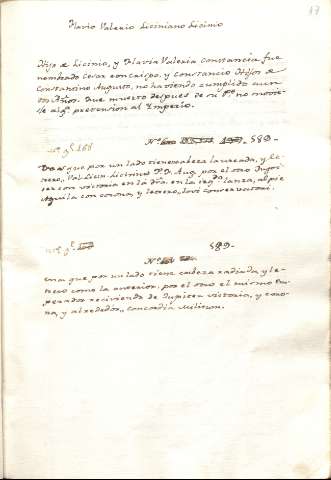 Flavio Valerio Liciniano Licinio
Hijo de Licinio, y Flavia Valeria Constancia fue
nombrado Cesar con Crispo, y Constancio Hijos de
Constantino Augusto, no haviendo cumplido
dos Años. Fue muerto despues de su Pe. no
pretension al Ymperio.
Nº 589-
que por un lado tiene cabeza laureada, y le-
trero, Val. Licin. Licinius P. F. Aug. por el otro Jupi-
ter con victoria en la dra. en la lanza, al pie
Aguila con corona, y letrero, Iovi conservatori.
589-
Nº
Una que por un lado tiene cabeza radiada, y le-
trero como la anterior, por el otro el mismo Em-
perador reciviendo de Jupiter victoria, y coro-
na, y alrededor, Concordia Militum.